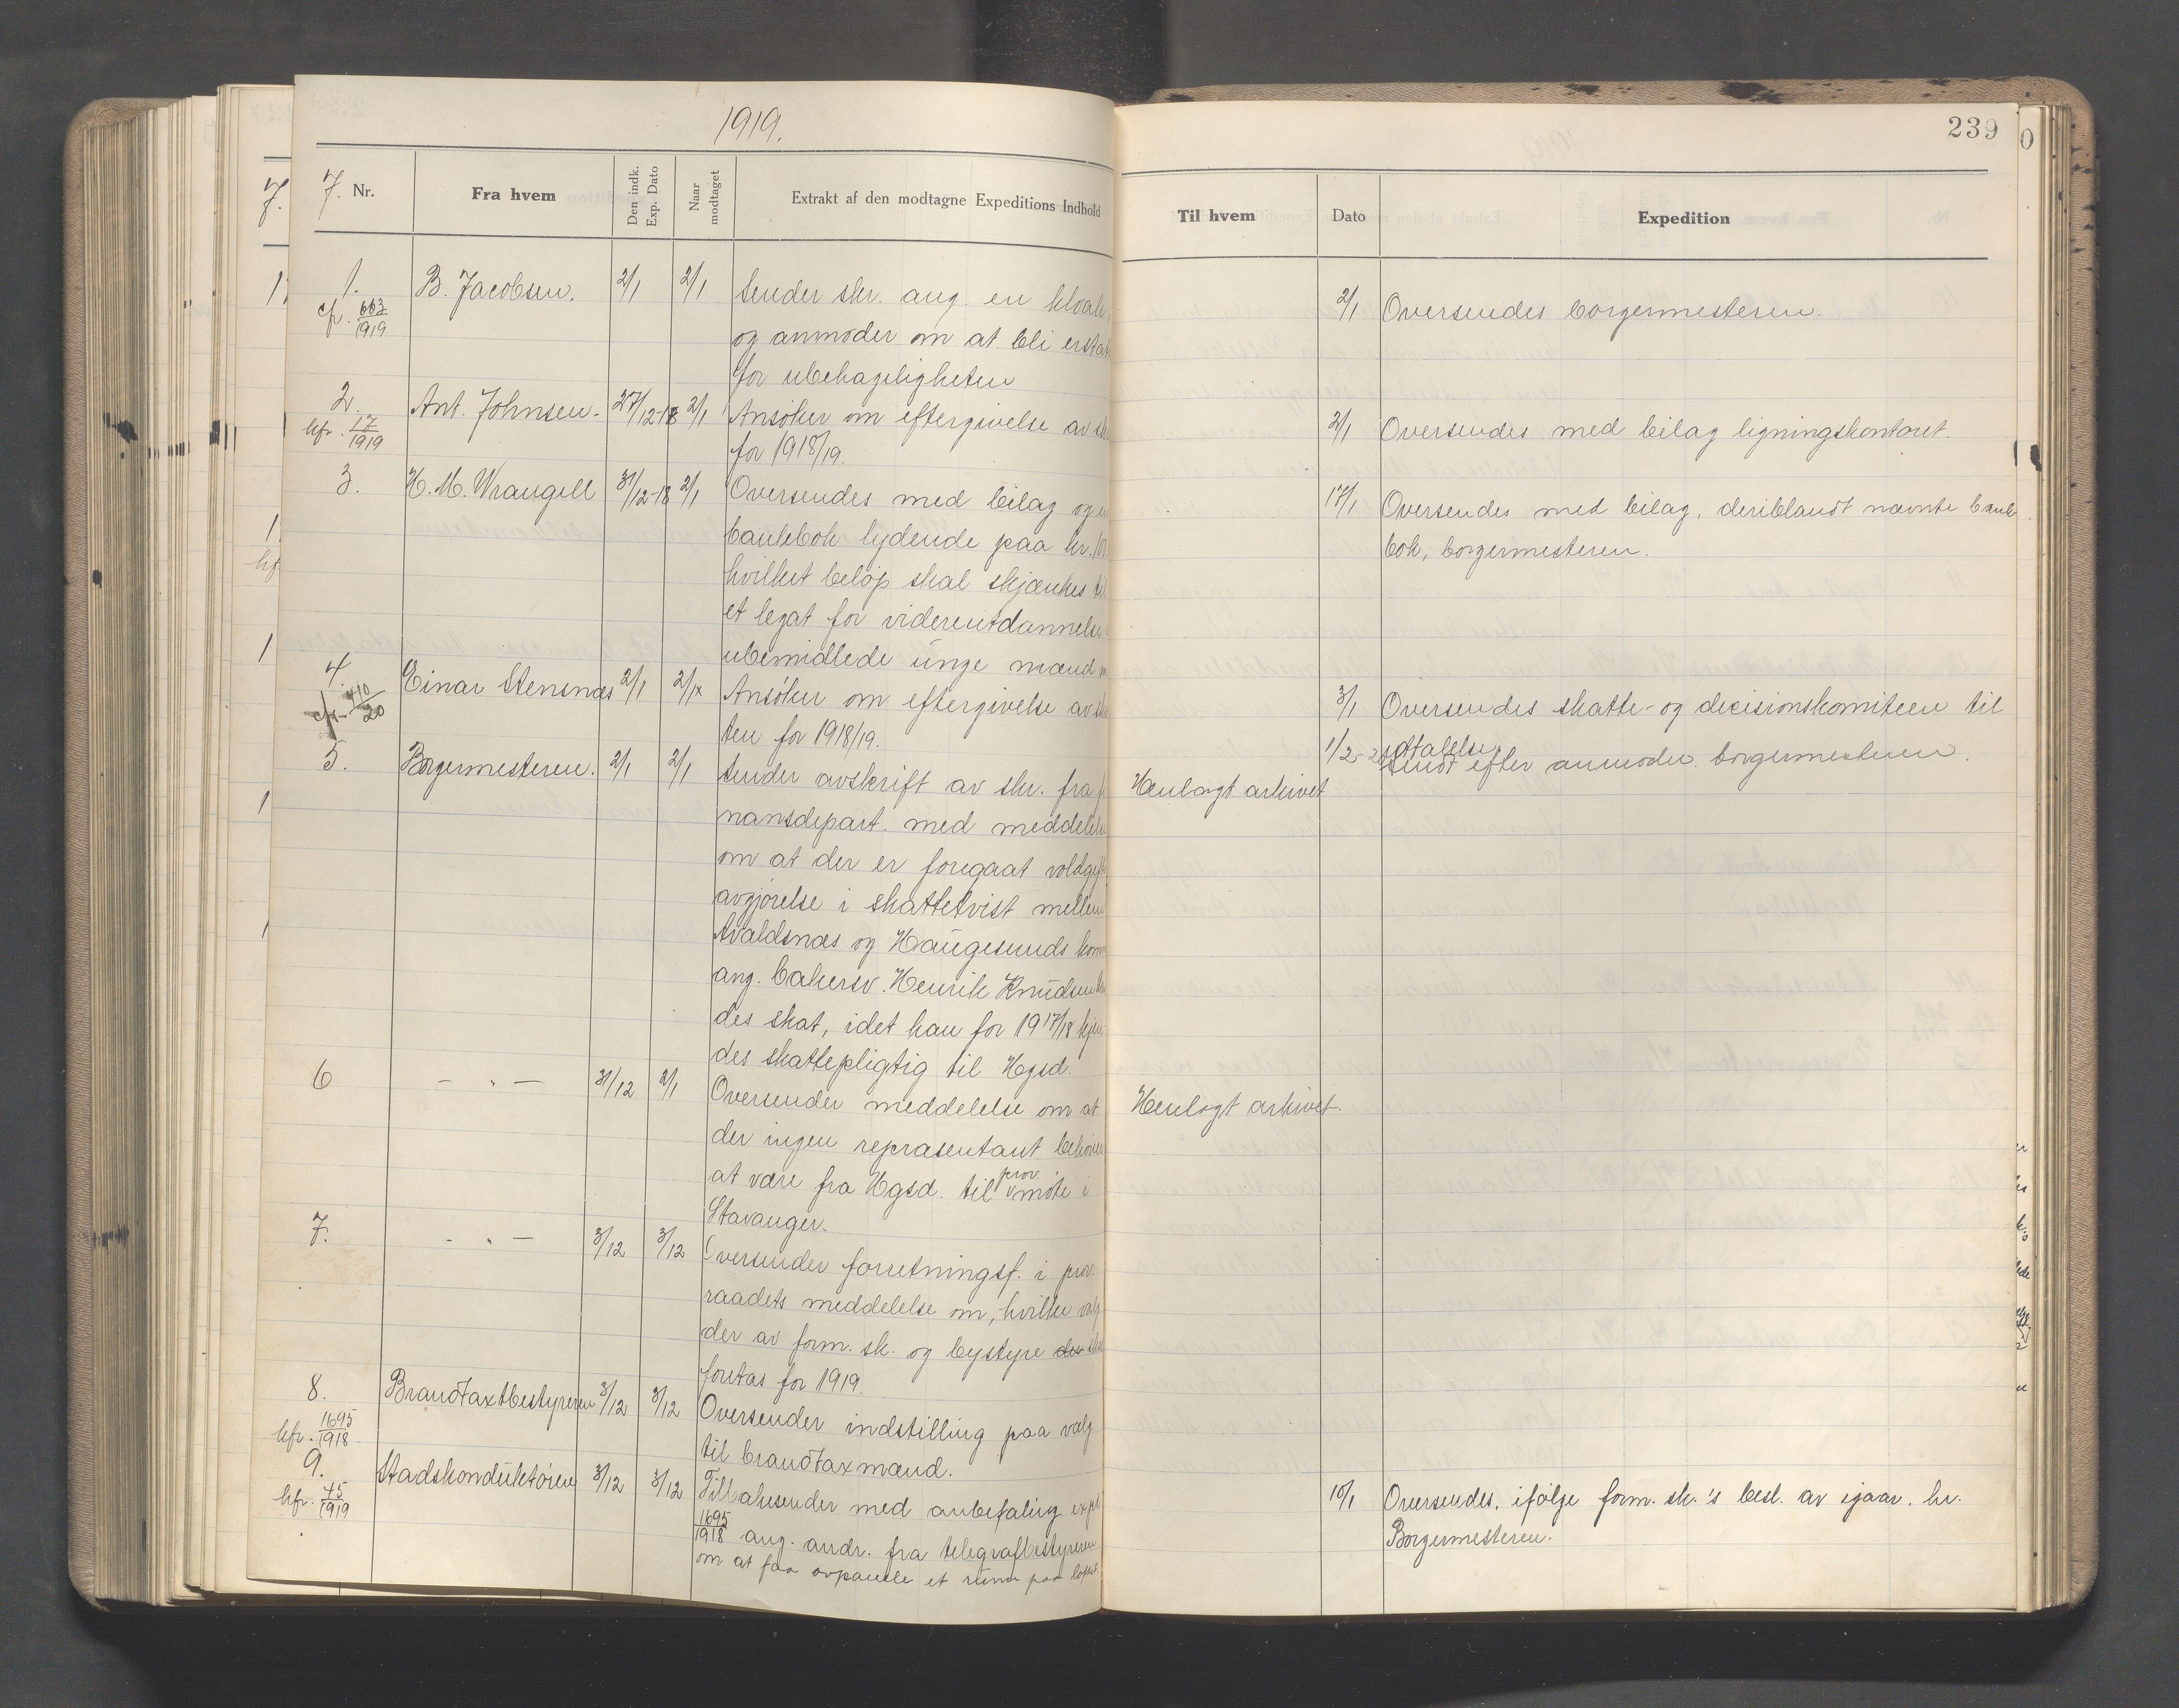 1919.
7. Nr.
Fra hvem
Den indk. Exp. Dato
Naar modtaget
Extrakt af den modtagne Expeditions Indhold
1. B. Jacobsen. 2/1 2/1 Sender skr. ang. en kloak
cfr. 663/1919
og anmoder om at bli erstat
for ubehageligheten
2. Ant. Johnsen. 27/12-18 2/1 Ansøker om eftergivelse av
kfr. 17/1919
for 1918/19.
3. H. M. Wrangell 31/12-18 2/1 Oversendes med bilag og
bankbok lydende paa kr.
hvilket beløp skal skjænkes
et legat for videreutdannelse
ubemidlede unge mænd
4. Einar Stensnæs 2/1 2/1 Ansøker om eftergivelse av
cfr. 410/20
ten for 1918/19.
5. Borgermesteren. 2/1 2/1 Sender avskrift av skr. fra
nansdepart. med meddelelse
om at der er foregaat voldgift
avgjørelse i skattetvist mellem
Avaldsnæs og Haugesunds kom
ang. bakersv. Henrik Knudsen
des skat, idet han for 1917/18 kjen
des skattepligtig til Hgsd.
6 — " — 31/12 2/1 Oversender meddelelse om at
der ingen repræsentant behøver
at være fra Hgsd. til prov. møte i
Stavanger.
7. — " — 3/12 3/12 Oversender forretningsf. i prov.
raadets meddelelse om, hvilke valg
der av form. sk. og bystyre der
foretas for 1919.
8. Brandtaxtbestyreren 3/12 3/12 Oversender indstilling paa valg
kfr. 1695/1918
til brandtaxmænd.
9. Stadskonduktøren 3/12 3/12 Tilbakesender med anbefaling
kfr. 45/1919
1695/1918 ang. andr. fra telegrafbestyreren
om at faa avpanele et rum paa loftet
239
Til hvem
Dato
Expedition
2/1 Oversendes borgermesteren.
2/1 Oversendes med bilag ligningskontoret.
17/1 Oversendes med bilag, deriblandt nævnte bank
bok, borgermesteren.
3/1 Oversendes skatte- og decisionskomiteen til
udtalelse.
1/2-20 Sendt efter anmodn. borgermesteren.
Henlagt arkivet
Henlagt arkivet.
10/1 Oversendes, ifølge form. sk.'s besl. av igaar. hr.
Borgermesteren.